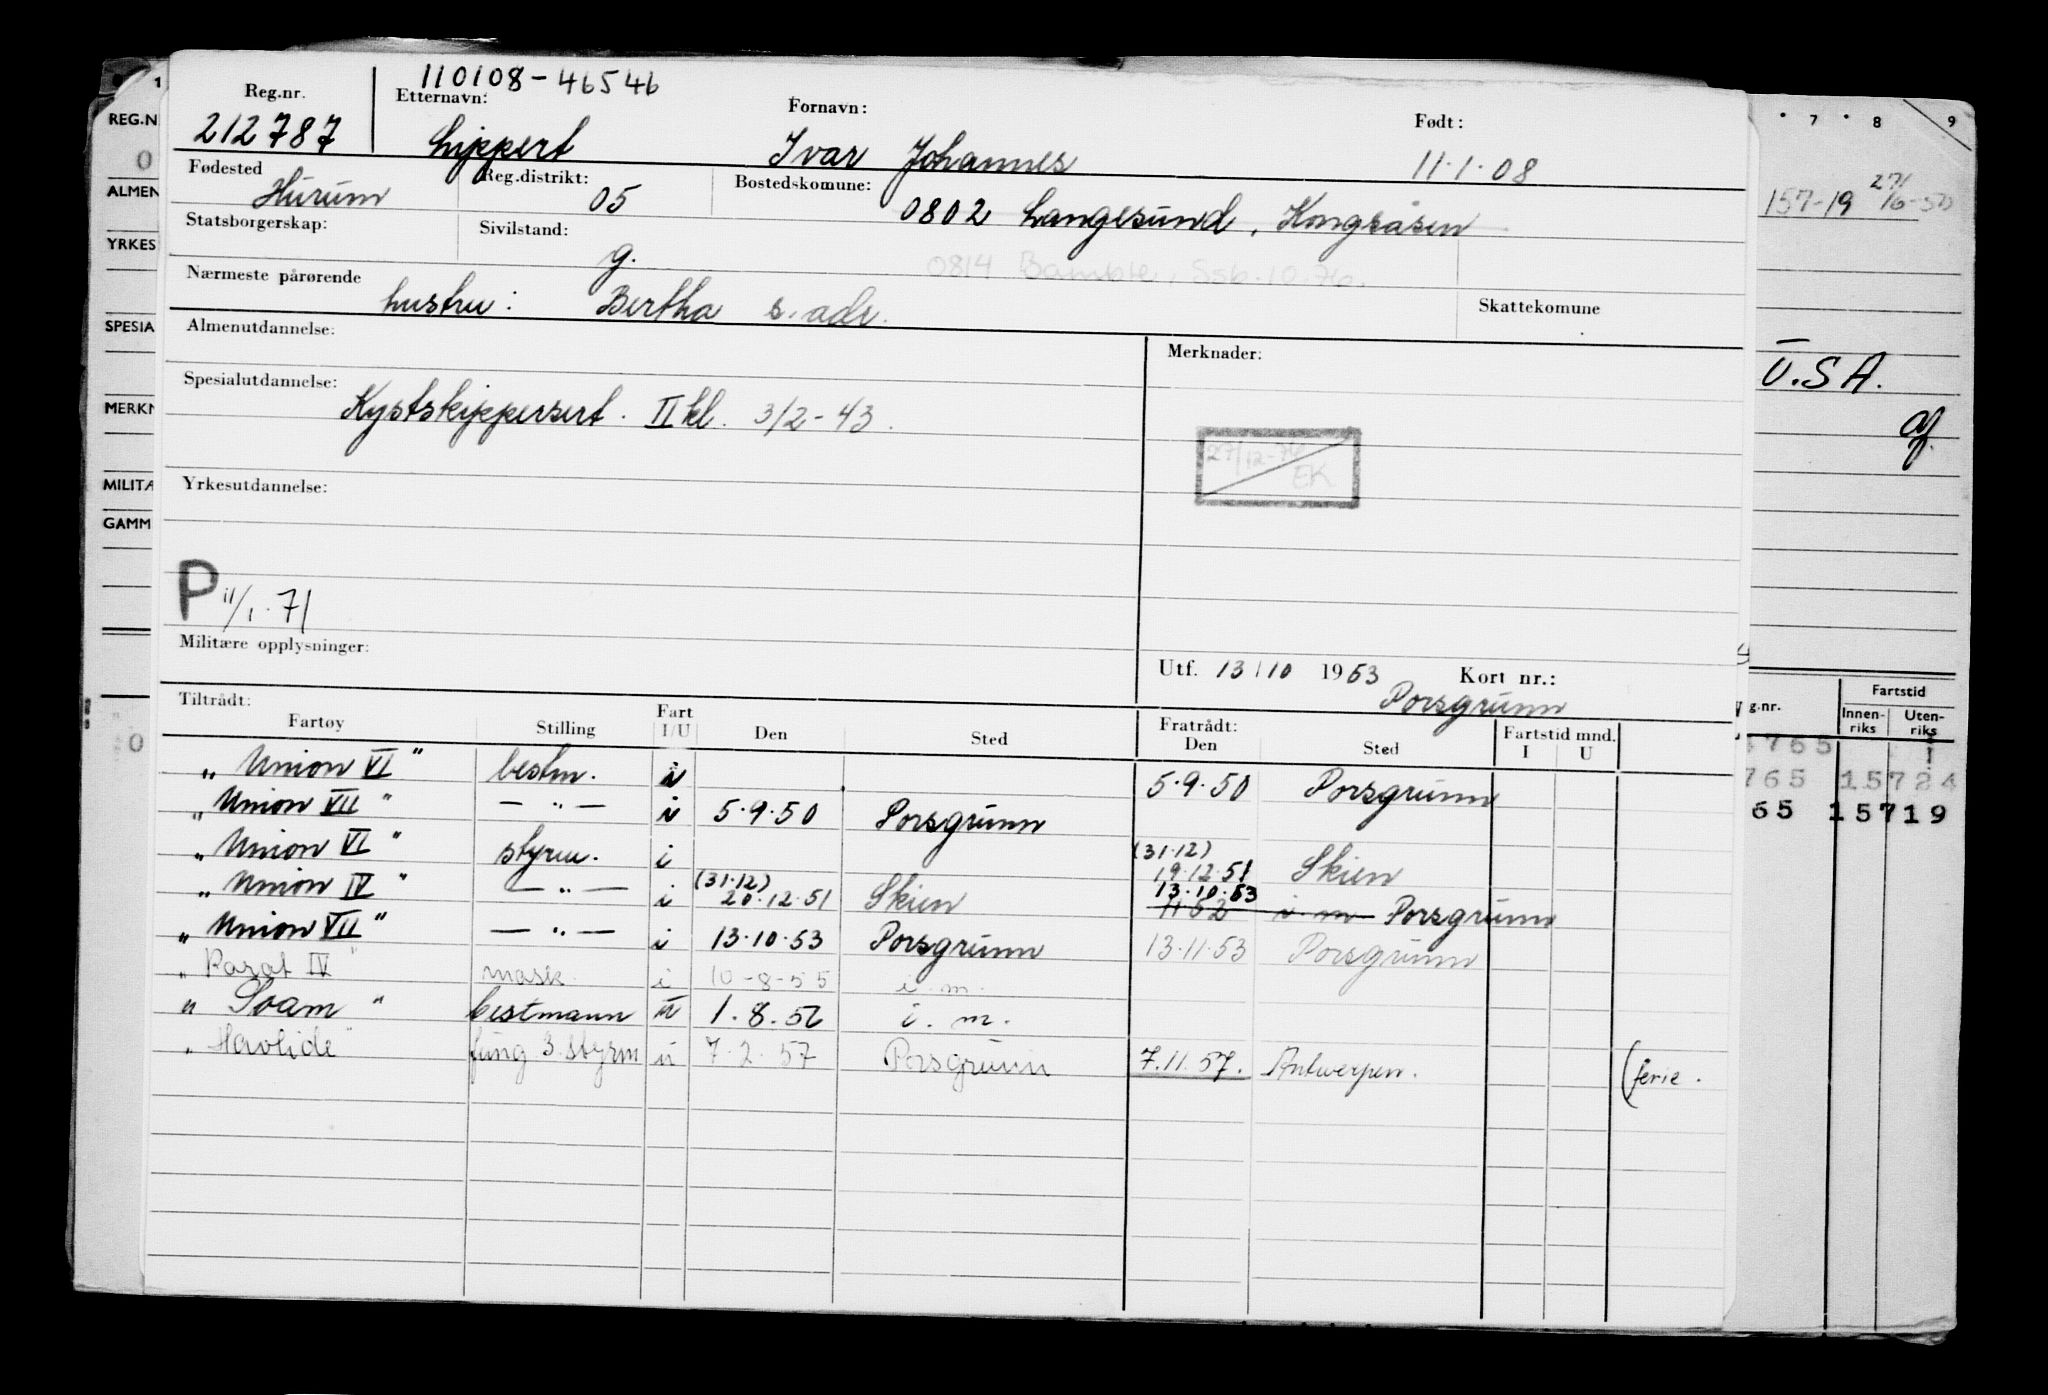 110108-46546
Reg.nr. Etternavn: Fornavn: Født:
212787 Lippert Ivar Johannes 11.1.08
Fødested Reg.distrikt: Bostedskomune:
Hurum 05 0802 Langesund, Kongsåsen
Statsborgerskap: Sivilstand:
g. 0814 Bamble, Ssb. 10.76.
Nærmeste pårørende Skattekomune
hustru: Bertha s. adr.
Almenutdannelse: Merknader:
Spesialutdannelse:
Kystskippersert. II kl. 3/2-43.
27/12-74
EK
Yrkesutdannelse:
P 11/1.71
Militære opplysninger:
Utf. 13/10 1953 Kort nr.:
Porsgrunn
Tiltrådt: Fratrådt:
Fartøy Stilling Fart I/U Den Sted Den Sted Fartstid mnd. I U
"Union VI" bestm. i 5.9.50 Porsgrunn
"Union VII" — " — i 5.9.50 Porsgrunn
"Union VI" styrm. i (31.12) 19.12.51 Skien
"Union IV" — " — i (31.12) 20.12.51 Skien 13.10.53 1152 i.m. Porsgrunn
"Union VII" — " — i 13.10.53 Porsgrunn 13.11.53 Porsgrunn
"Parat IV" mask. i 10-8-55 i.m.
"Svam" bestmann u 1.8.56 i.m.
"Havlide" fung 3. styrm u 7.2.57 Porsgrunn 7.11.57. Antwerpen. (ferie.
1
REG.N
0
ALMEN
YRKES
SPESIA
MERKN
MILITÆ
GAMM
0
7 8 9
157-19 27/6-50
U.S.A.
g.nr. Fartstid
Innenriks Utenriks
765
765 15724
65 15719